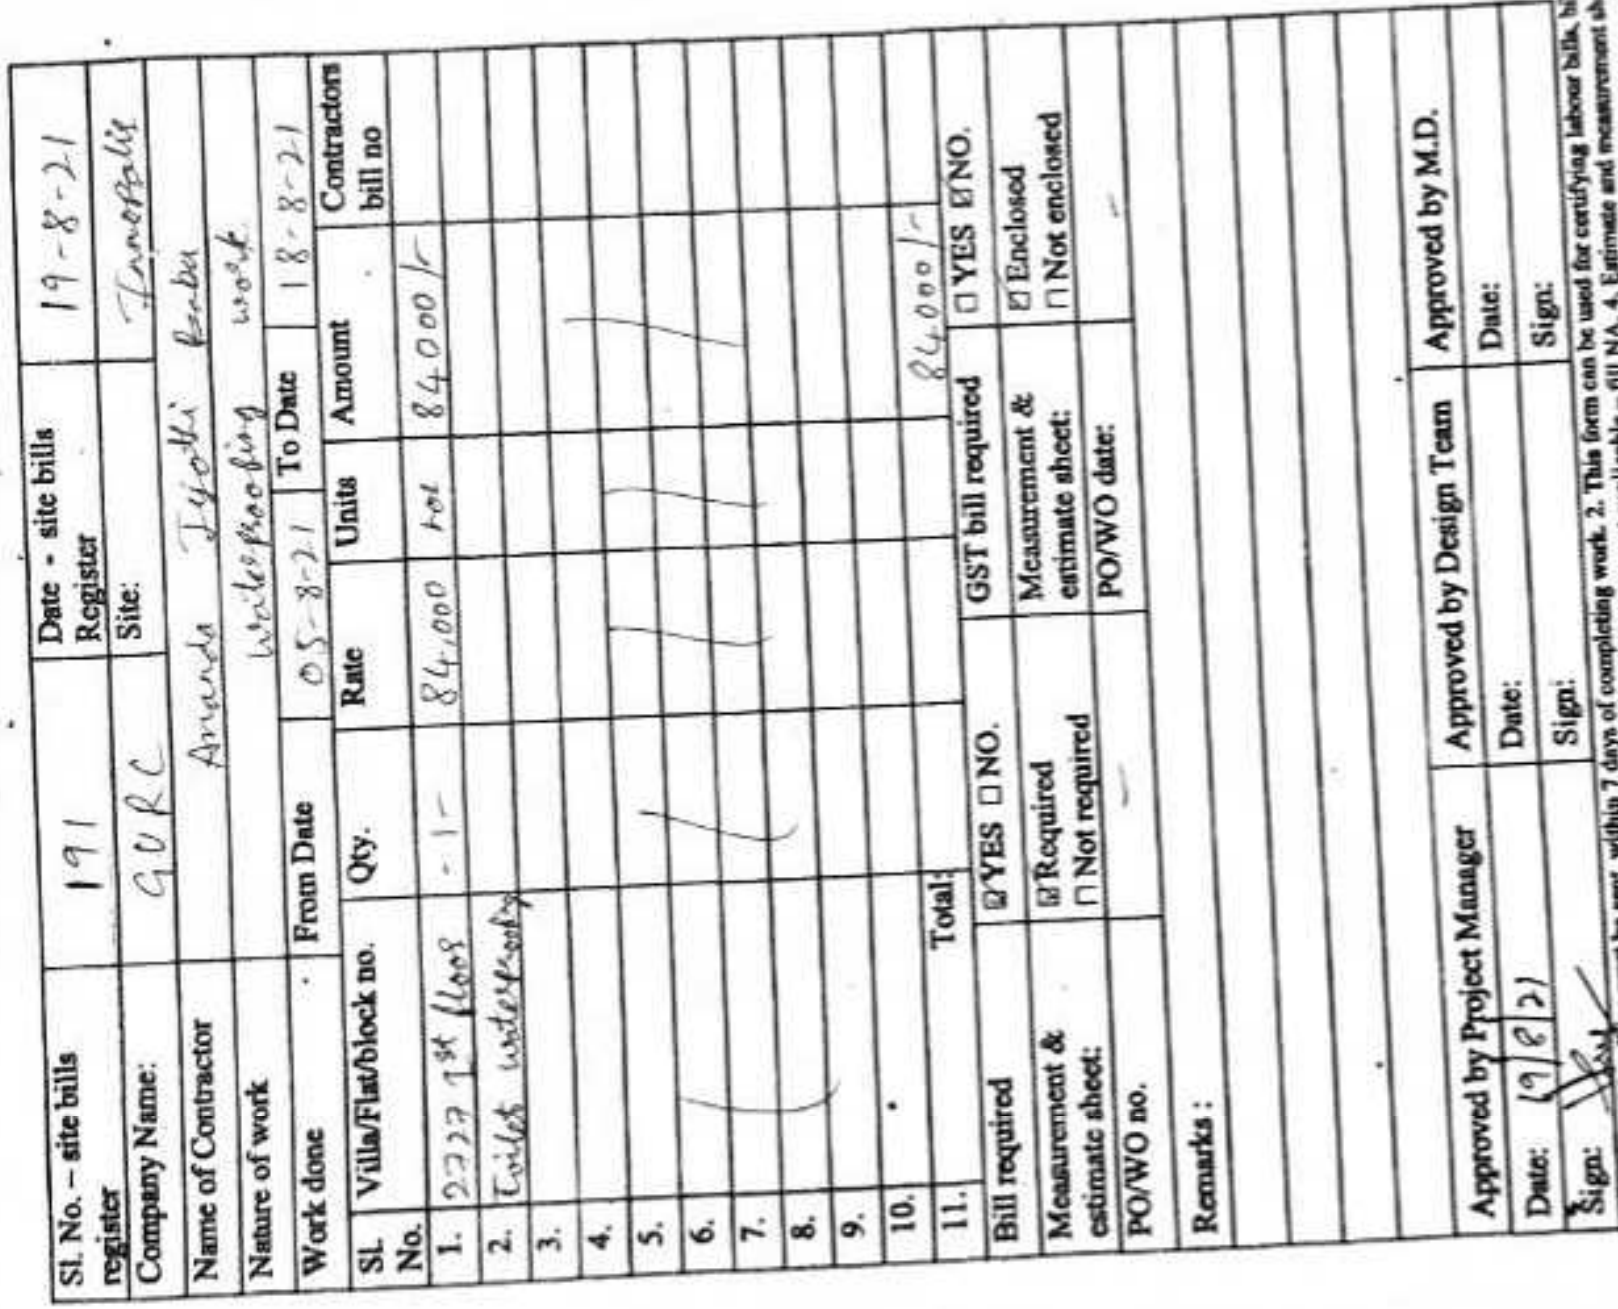 Sl. No. – site bills register 191 Date - site bills Register 19-8-21
Company Name: GVRC Site: Innopolis
Name of Contractor Ananda Jyothi
Nature of work Waterproofing work
Work done From Date 05-8-21 To Date 18-8-21
Sl. No. Villa/Flat/block no. Qty. Rate Units Amount Contractors bill no
1. 2727 1st floor -1- 84,000 84000/-
2. Toilet waterproofing
3.
4.
5.
6.
7.
8.
9.
10.
11. Total: 84000/-
Bill required ☑ YES ☐ NO. GST bill required ☐ YES ☑ NO.
Measurement & estimate sheet: ☑ Required ☐ Not required Measurement & estimate sheet: ☑ Enclosed ☐ Not enclosed
PO/WO no. – PO/WO date: –
Remarks :
Approved by Project Manager Approved by Design Team Approved by M.D.
Date: 19/8/21 Date: Date:
Sign: Sign: Sign:
within 7 days of completing work. 2. This form can be used for certifying labour bills,
fill NA. 4. Estimate and measurement